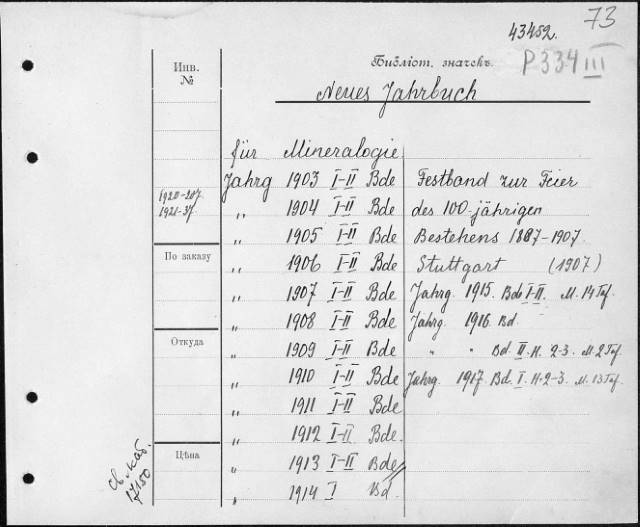 73
43452.
Библіот. значекъ. P334 III
Инв. №
Neues Jahrbuch
für Mineralogie
Jahrg 1903 I-II Bde Festband zur Feier
1920-207
1921-37.
„ 1904 I-II Bde des 100-jährigen
„ 1905 I-II Bde Bestehens 1887-1907.
По заказу
„ 1906 I-II Bde Stuttgart (1907)
„ 1907 I-II Bde Jahrg. 1915. Bde I-II. M. 14 Taf.
„ 1908 I-II Bde Jahrg. 1916. Bd.
Откуда
„ 1909 I-II Bde „ „ Bd. II. H. 2-3. M. 2 Taf.
„ 1910 I-II Bde Jahrg. 1917. Bd. I. H. 2-3. M. 13 Taf.
„ 1911 I-II Bde
„ 1912 I-II Bde.
Цѣна
„ 1913 I-II Bde
„ 1914 I Bd.
17150